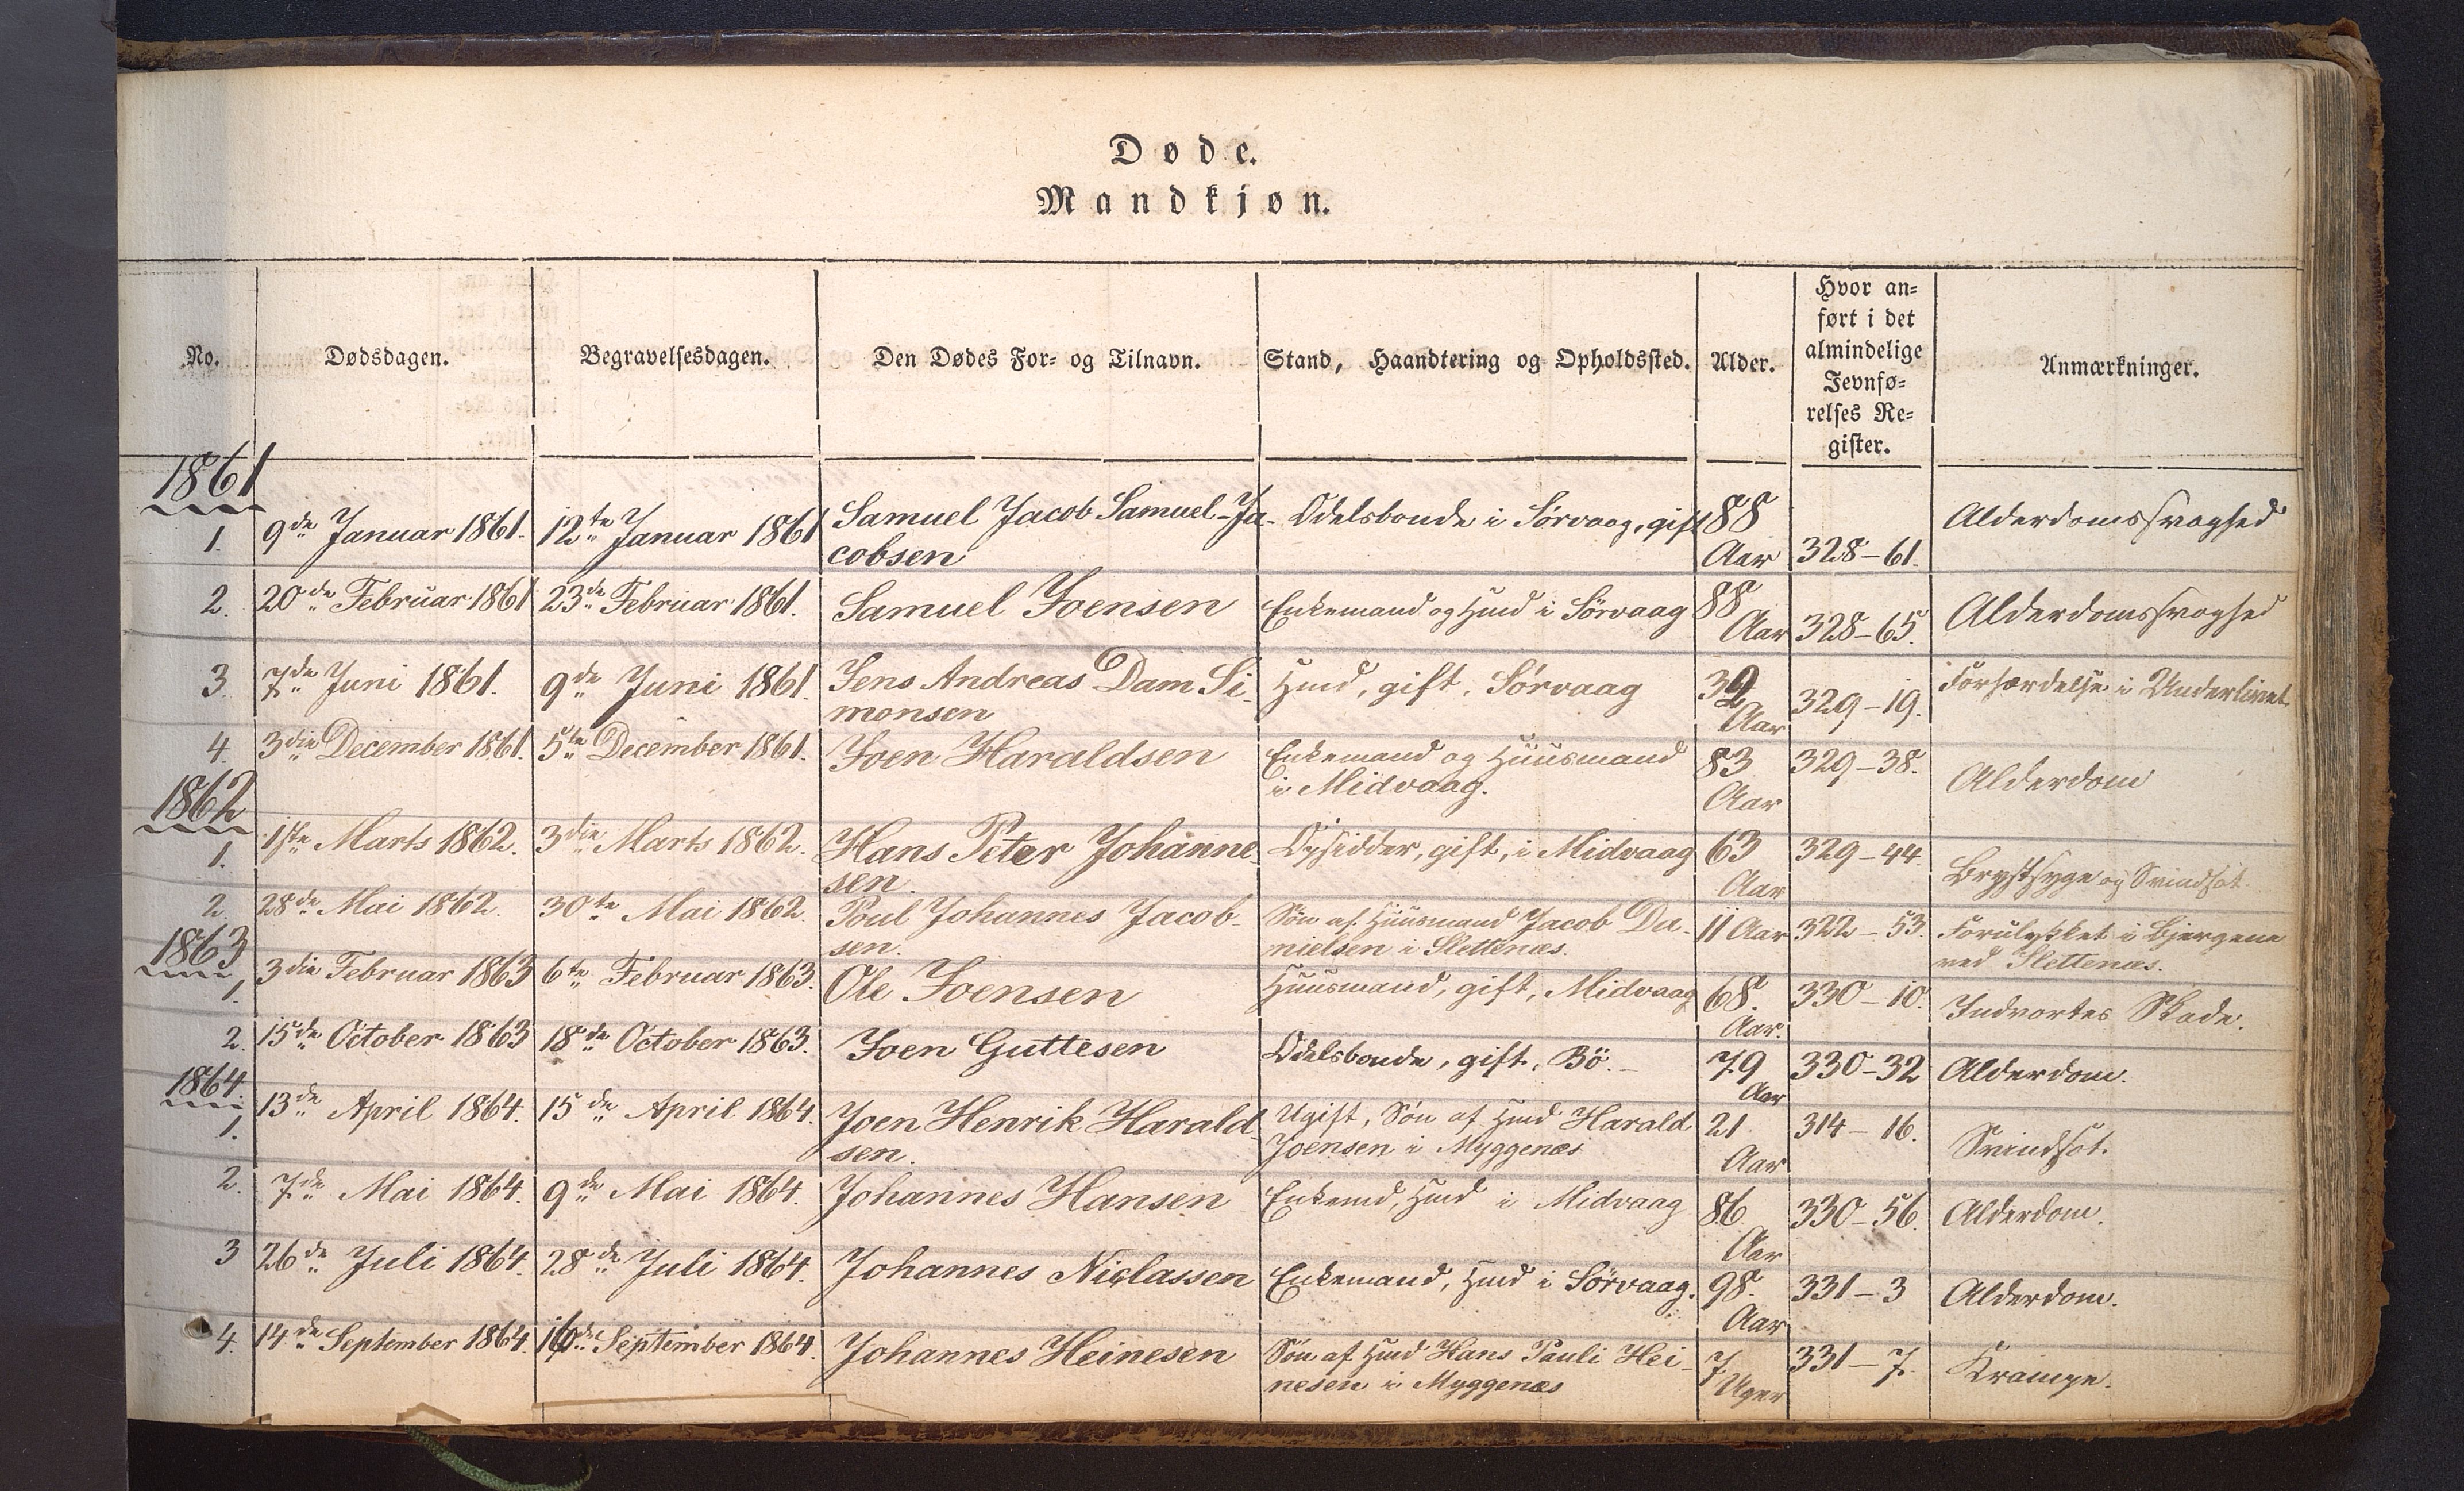 Døde.
Mandkjøn.
No. Dødsdagen. Begravelsesdagen. Den Dødes For- og Tilnavn. Stand, Haandtering og Opholdssted. Alder. Hvor an-
ført i det
almindelige
Jevnfø-
relses Re-
gister. Anmærkninger.
1861
1. 9de Januar 1861. 12te Januar 1861 Samuel Jacob Samuel-Ja- Odelsbonde i Sörvaag, gift 88 Alderdomssvaghed
cobsen Aar 328-61.
2. 20de Februar 1861 23de Februar 1861. Samuel Joensen Enkemand og Hmd i Sörvaag 88 Alderdomssvaghed
Aar 328-65.
3. 7de Juni 1861. 9de Juni 1861. Jens Andreas Dam Si- Hmd, gift, Sörvaag 39 329-19. Forhærdelse i Underlivet.
monsen Aar
4. 3die December 1861. 5te December 1861. Joen Haraldsen Enkemand og Huusmand 83 329-38. Alderdom
i Midvaag. Aar
1862
1. 1ste Marts 1862. 3die Marts 1862. Hans Peter Johanne- Opsidder, gift, i Midvaag 63 329-44. Brystsyge og Svindsot.
sen. Aar
2. 28de Mai 1862. 30te Mai 1862. Poul Johannes Jacob- Søn af Huusmand Jacob Da- 11 Aar 322-53. Forulykket i Bjergene
sen. nielsen i Slettenæs. ved Slettenæs.
1863
1. 3die Februar 1863 6te Februar 1863. Ole Joensen Huusmand, gift, Midvaag 68. 330-10. Indvortes Skade.
Aar.
2. 15de October 1863 18de October 1863. Joen Guttesen Odelsbonde, gift, Bö. 79 330-32 Alderdom.
Aar
1864.
1. 13de April 1864. 15de April 1864. Joen Henrik Harald- Ugift, Søn af Hmd Harald 21 314-16. Svindsot.
sen. Joensen i Myggenæs Aar
2. 7de Mai 1864. 9de Mai 1864. Johannes Hansen Enkemd, Hmd i Midvaag 86 330-56. Alderdom.
Aar
3 26de Juli 1864. 28de Juli 1864. Johannes Niclassen Enkemand, Hmd i Sörvaag. 98. 331-3 Alderdom.
Aar
4. 14de September 1864. September 1864. Johannes Heinesen Søn af Hmd Hans Pauli Hei- 7 331-7. Krampe.
nesen i Myggenæs Uger